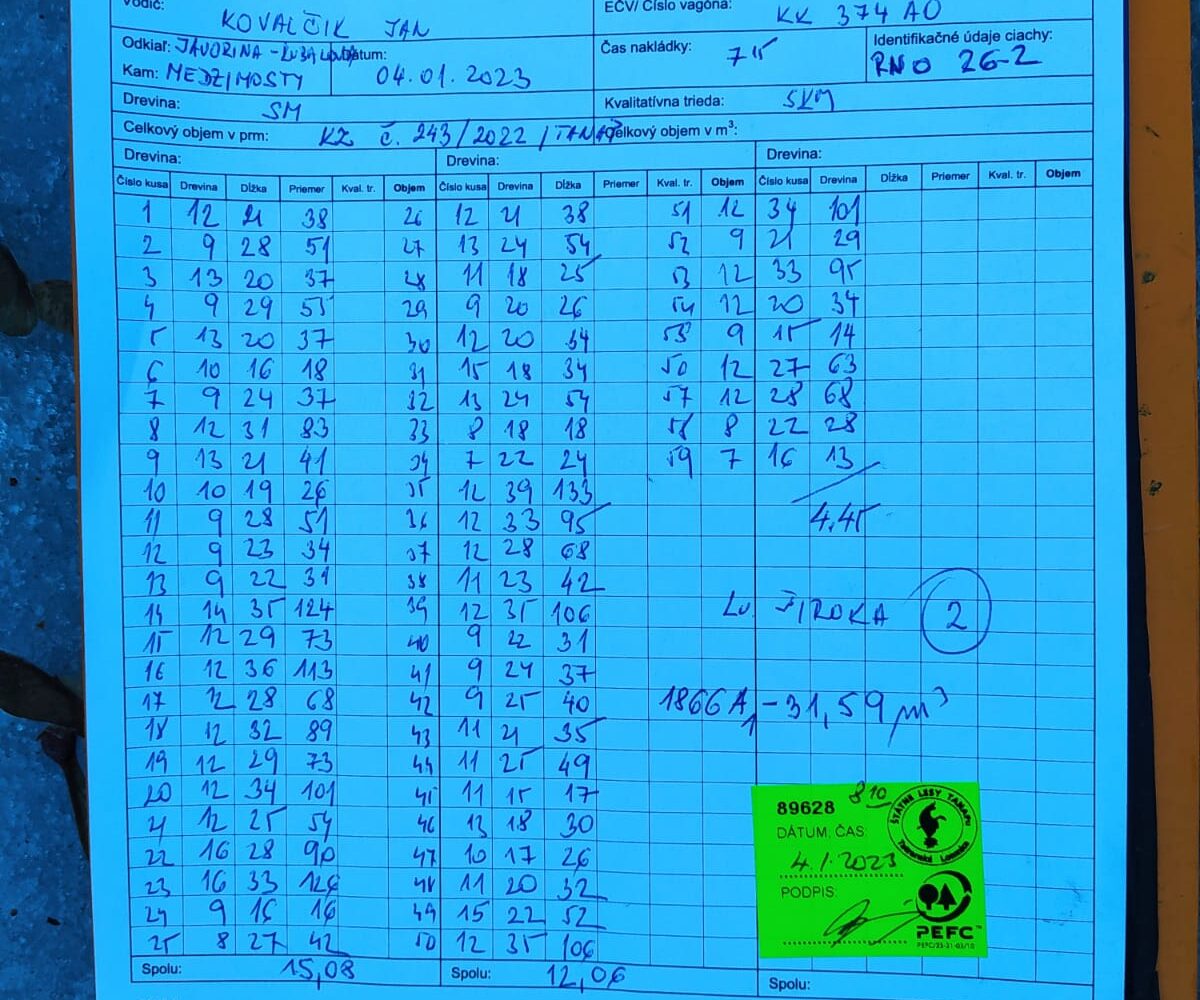 Vodič: KOVALČIK JAN
EČV/ Číslo vagóna: KK 374 AO
Odkiaľ: JAVORINA -
Dátum: 04.01.2023
Kam: MEDZIMOSTY
Čas nakládky: 7 15
Identifikačné údaje ciachy: RNO 26-2
Drevina: SM
Kvalitatívna trieda: SKM
Celkový objem v prm: KZ č. 243/2022 / TANAP
Celkový objem v m³:
Drevina: Drevina: Drevina:
Číslo kusa Drevina Dĺžka Priemer Kval. tr. Objem Číslo kusa Drevina Dĺžka Priemer Kval. tr. Objem Číslo kusa Drevina Dĺžka Priemer Kval. tr. Objem
1 12 21 38 26 12 21 38 51 12 34 101
2 9 28 51 27 13 24 54 52 9 21 29
3 13 20 37 28 11 18 25 53 12 33 95
4 9 29 55 29 9 20 26 54 12 20 34
5 13 20 37 30 12 20 34 55 9 15 14
6 10 16 18 31 15 18 34 12 27 63
7 9 24 37 32 13 24 54 57 12 28 68
8 12 31 83 33 8 18 18 58 8 22 28
9 13 21 41 34 7 22 24 59 7 16 13
10 10 19 26 35 12 39 133
11 9 28 51 36 12 33 95 4,45
12 9 23 34 37 12 28 68
13 9 22 31 38 11 23 42
14 14 35 124 39 12 35 106 ŠIROKA 2
15 12 29 73 40 9 22 31
16 12 36 113 41 9 24 37
17 12 28 68 42 9 25 40 1866 A1 - 31,59 m³
18 12 32 89 43 11 21 35
19 12 29 73 44 11 25 49
20 12 34 101 45 11 15 17
21 12 25 54 46 13 18 30
22 16 28 90 47 10 17 26
23 16 33 126 48 11 20 32
24 9 16 16 49 15 22 52
25 8 27 42 50 12 35 106
Spolu: 15,08 Spolu: 12,06 Spolu:
89628 8 10
ŠTÁTNE LESY TANAPU
Tatranská Lomnica
DÁTUM, ČAS:
4.1.2023
PODPIS:
PEFC™
PEFC/23-31-03/10